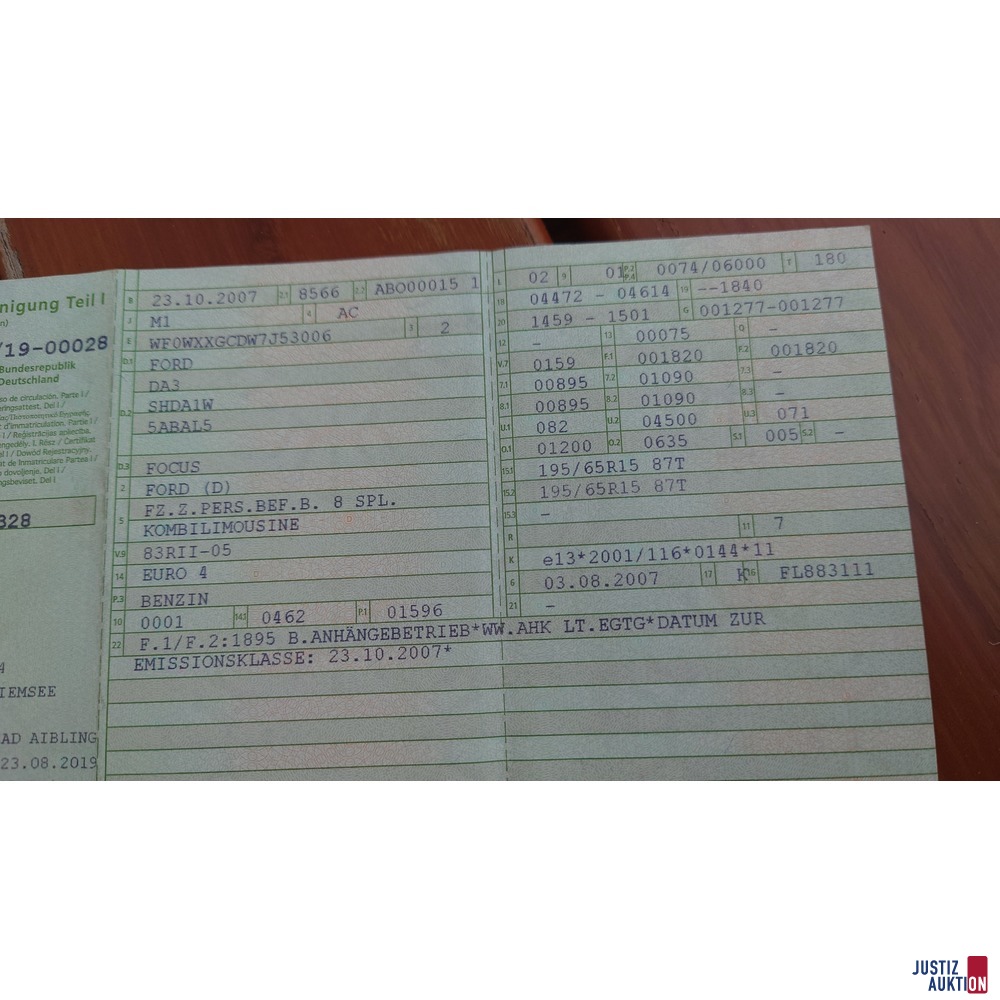 nigung Teil I
/19-00028
Bundesrepublik
Deutschland
328
IEMSEE
AD AIBLING
23.08.2019
B 23.10.2007 2.1 8566 2.2 ABO00015 1
J M1 4 AC
E WF0WXXGCDW7J53006 3 2
D.1 FORD
DA3
D.2 SHDA1W
5ABAL5
D.3 FOCUS
2 FORD (D)
5 FZ.Z.PERS.BEF.B. 8 SPL.
KOMBILIMOUSINE
V.9 83RII-05
14 EURO 4
P.3 BENZIN
10 0001 14.1 0462 P.1 01596
L 02 9 01 P.2 P.4 0074/06000 T 180
18 04472 - 04614 19 --1840
20 1459 - 1501 G 001277-001277
12 - 13 00075 Q -
V.7 0159 F.1 001820 F.2 001820
7.1 00895 7.2 01090 7.3 -
8.1 00895 8.2 01090 8.3 -
U.1 082 U.2 04500 U.3 071
O.1 01200 O.2 0635 S.1 005 S.2 -
15.1 195/65R15 87T
15.2 195/65R15 87T
15.3 -
R 11 7
K e13*2001/116*0144*11
6 03.08.2007 17 K 16 FL883111
21 -
22 F.1/F.2:1895 B.ANHÄNGEBETRIEB*WW.AHK LT.EGTG*DATUM ZUR
EMISSIONSKLASSE: 23.10.2007*
JUSTIZ
AUKTION